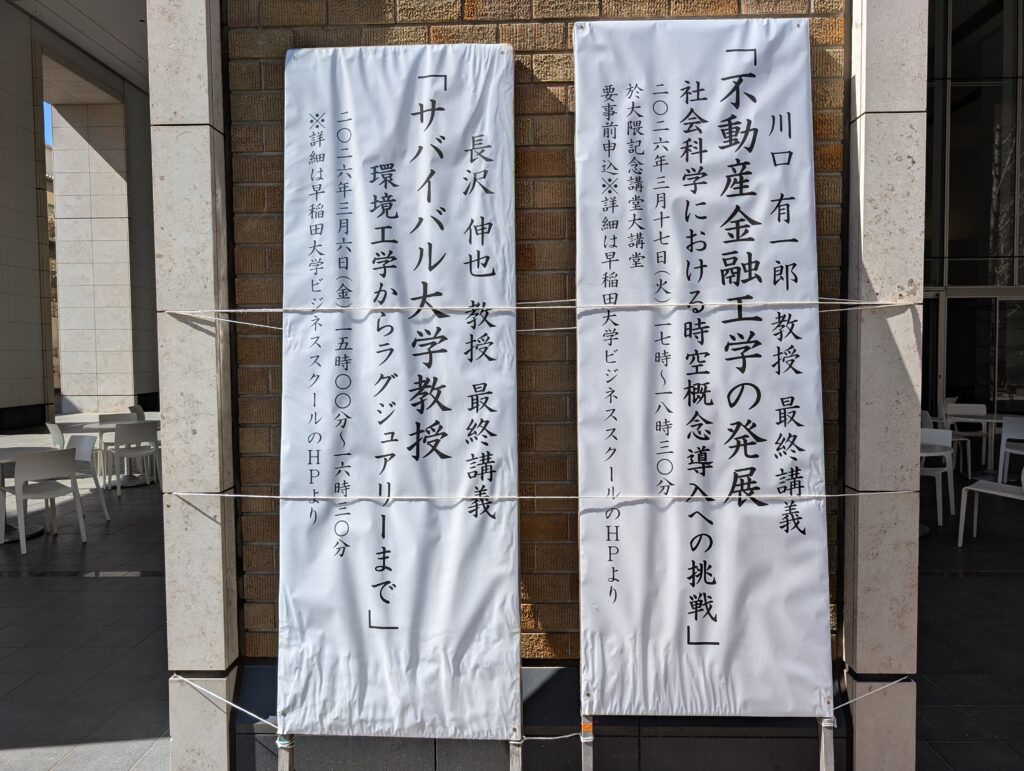 川口 有一郎 教授 最終講義
「不動産金融工学の発展
社会科学における時空概念導入への挑戦」
二〇二六年三月十七日(火) 一七時～一八時三〇分
於大隈記念講堂大講堂
要事前申込※詳細は早稲田大学ビジネススクールのHPより
長沢 伸也 教授 最終講義
「サバイバル大学教授
環境工学からラグジュアリーまで」
二〇二六年三月六日(金) 一五時〇〇分～一六時三〇分
※詳細は早稲田大学ビジネススクールのHPより